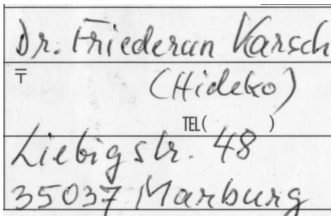 Dr. Friederun Karsch
〒 (Hideko)
TEL( )
Liebigstr. 48
35037 Marburg